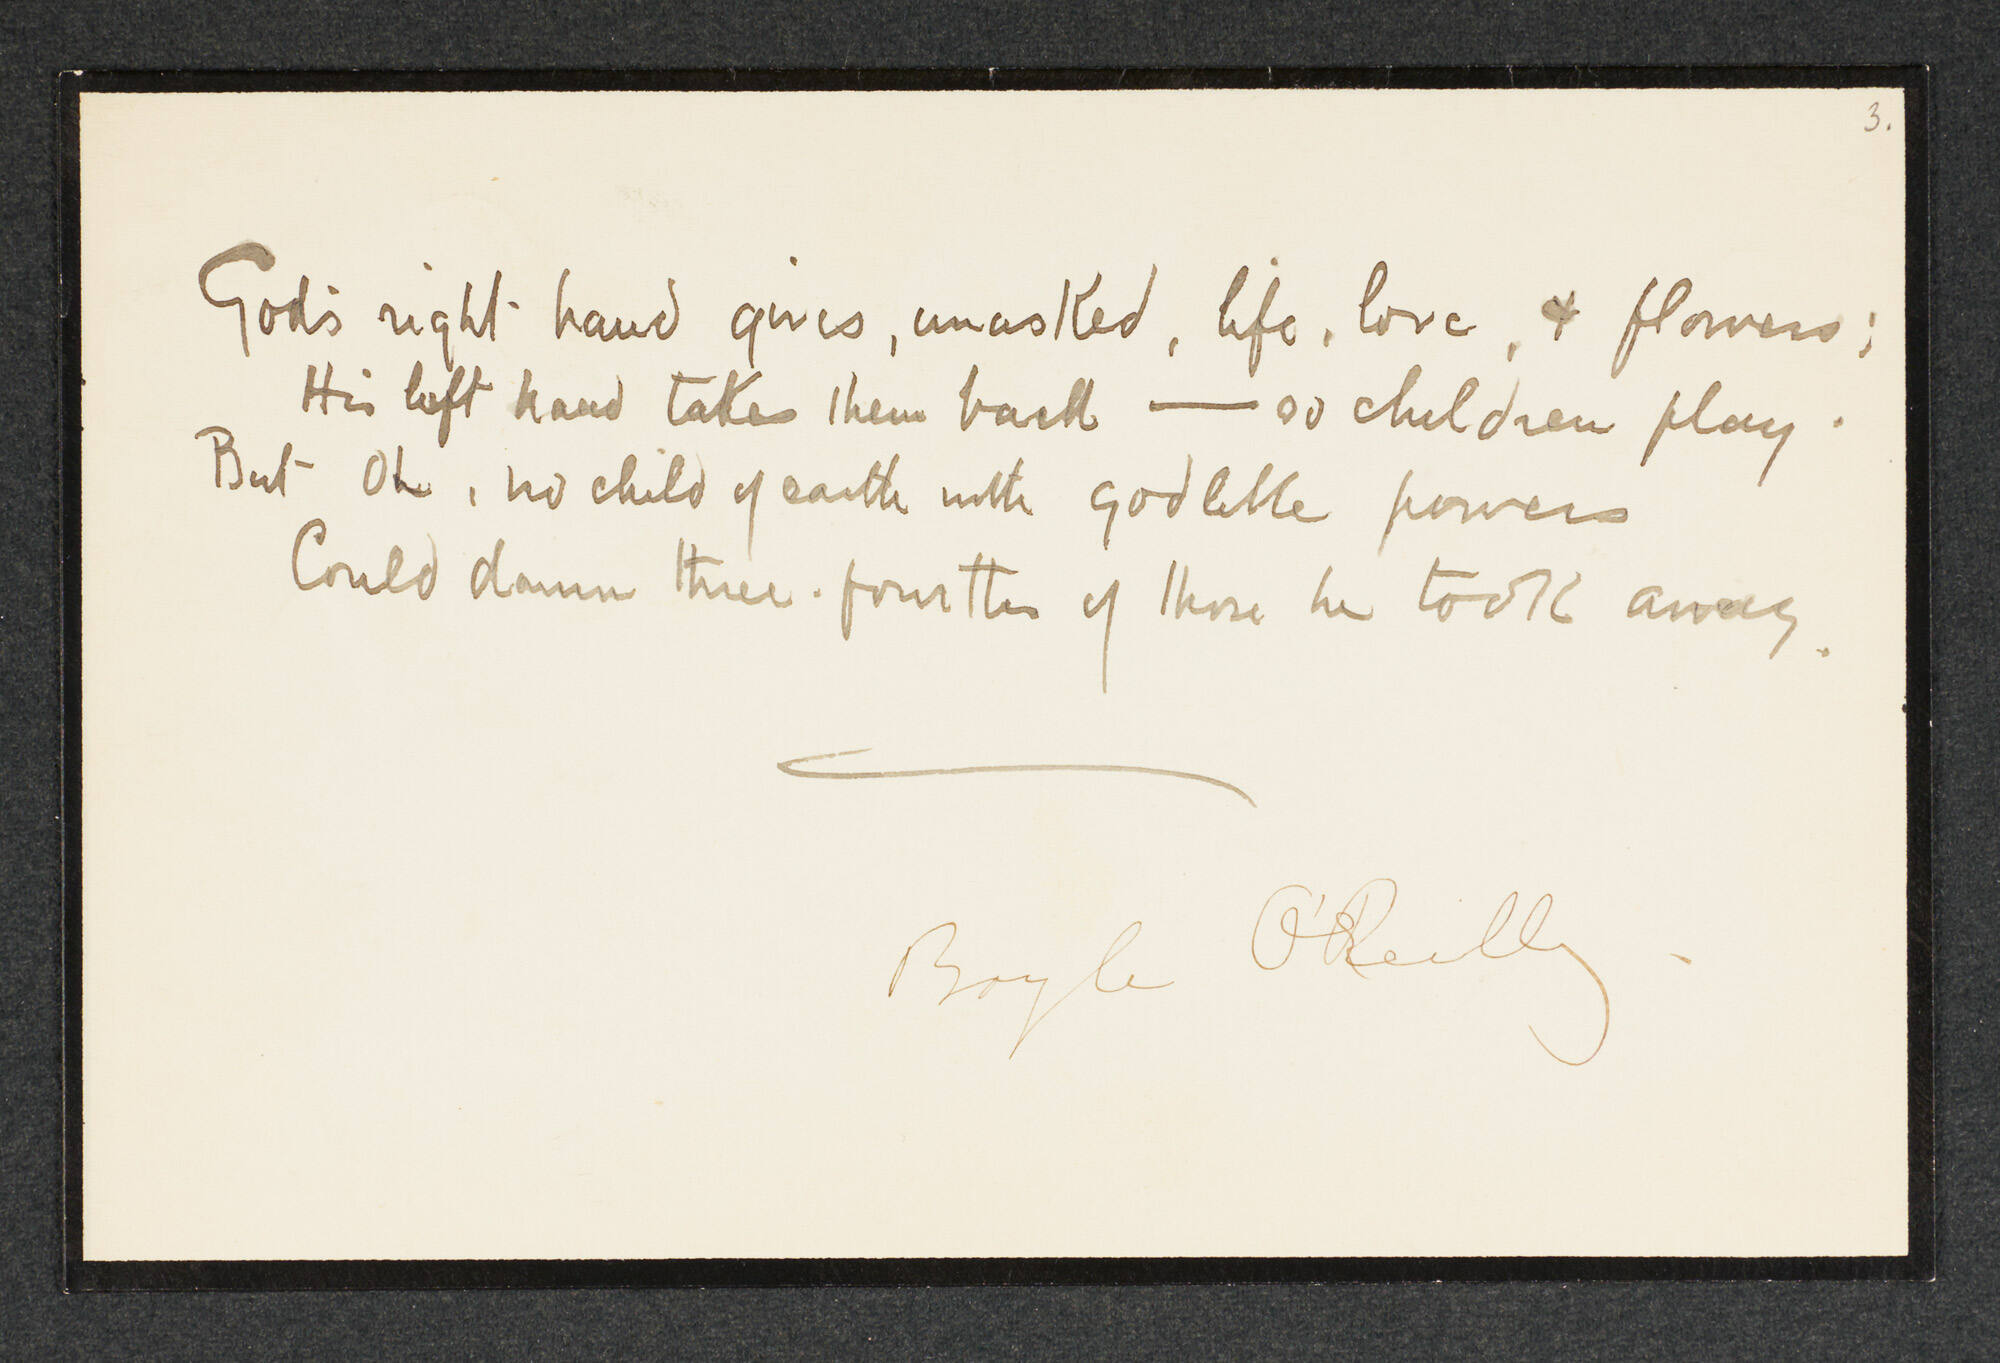 3.
God's right hand gives, unasked, life, love, & flowers;
His left hand takes them back — so children play.
But Oh, no child of earth with godlike powers
Could damn three-fourths of those he took away.
Boyle O'Reilly.